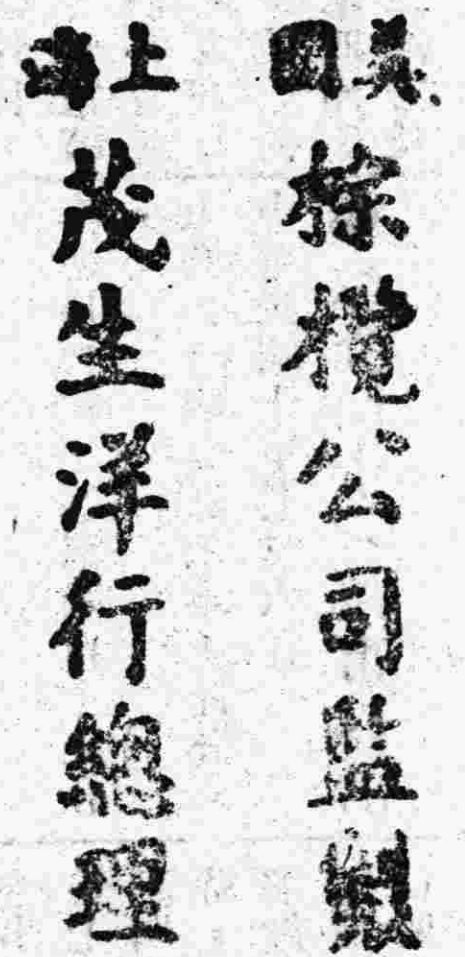 英國棕欖公司監製
上海茂生洋行總理